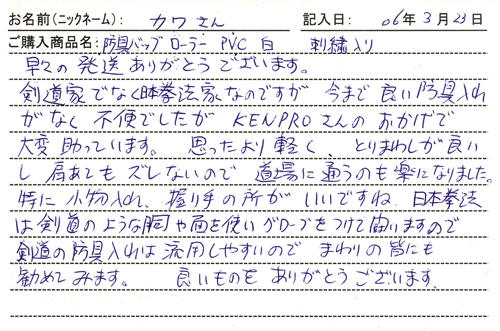 お名前(ニックネーム): カワさん 記入日: 06年3月23日
ご購入商品名: 防具バッグ ローラー PVC 白 刺繍入り
早々の発送ありがとうございます。
剣道家でなく日本拳法家なのですが 今まで良い防具入れ
がなく 不便でしたが KENPROさんのおかげで
大変 助っています。 思ったより軽く、とりまわしが良い
し 肩あても ズレないので 道場に通うのも楽になりました。
特に小物入れ、握り手の所が いいですね、日本拳法
は剣道のような胴や面を使いグローブをつけて闘いますので
剣道の防具入れは流用しやすいので まわりの皆にも
勧めてみます。 良いものを ありがとうございます。